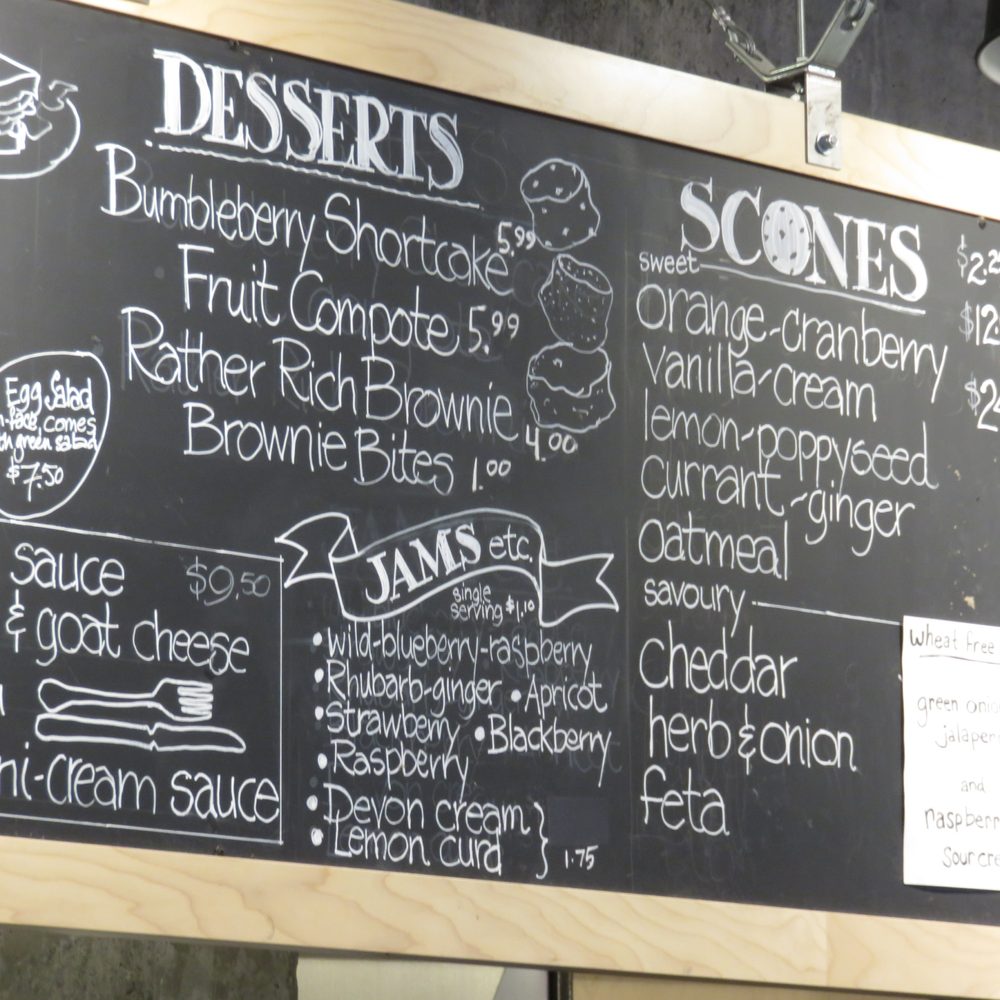 DESSERTS
Bumbleberry Shortcake 5.99
Fruit Compote 5.99
Rather Rich Brownie 4.00
Brownie Bites 1.00
Egg Salad
comes
green salad
$7.50
sauce $9.50
& goat cheese
cream sauce
JAMS etc.
single
serving $1.10
• wild-blueberry-raspberry
• Rhubarb-ginger • Apricot
• Strawberry • Blackberry
• Raspberry
• Devon cream
• Lemon curd } 1.75
SCONES
sweet
orange-cranberry
vanilla-cream
lemon-poppyseed
currant-ginger
oatmeal
savoury
cheddar
herb & onion
feta
wheat free
green
and